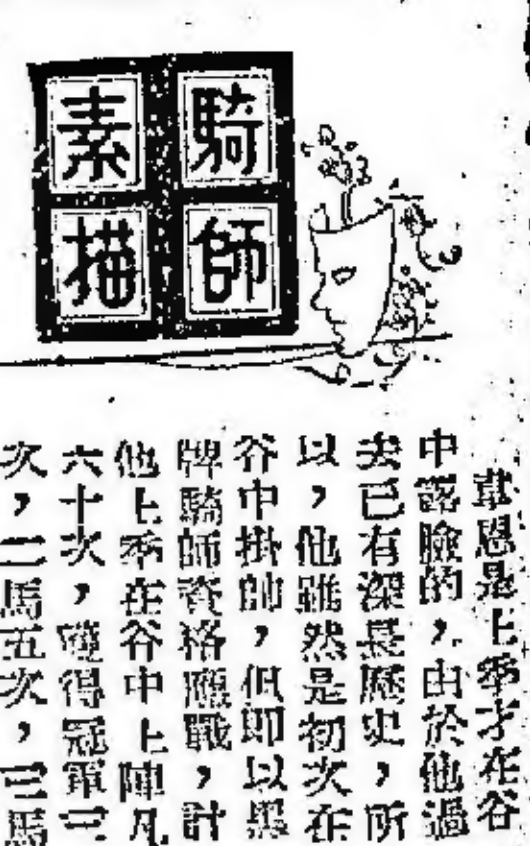 騎師
素描
韋恩是上季才在谷
中露臉的，由於他過
去已有深長歷史，所
以，他雖然是初次在
谷中掛帥，但即以黑
牌騎師資格應戰，計
他上季在谷中上陣凡
六十次，獲得冠軍三
次，二馬五次，三馬